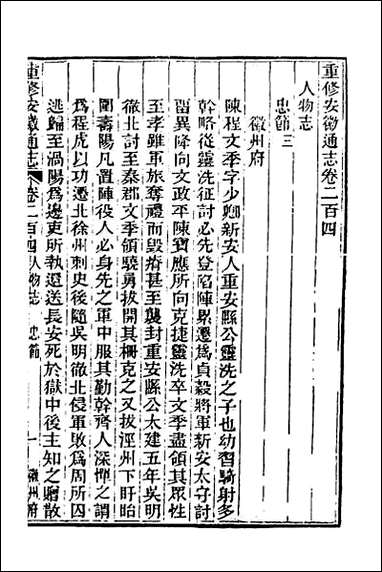 重修安徽通志卷二百四
人物志
忠節三
徽州府
陳程文季字少卿新安人重安縣公靈洗之子也幼習騎射多
幹略從靈洗征討必先登陷陣累遷爲貞毅將軍新安太守討
留異降向文政平陳寶應所向克捷靈洗卒文季盡領其眾性
至孝雖軍旅奪禮而毀瘠甚至襲封重安縣公太建五年吳明
徹北討至秦郡文季領驍勇拔開其柵克之又拔涇州下盱眙
圍壽陽凡置陣役人必身先之軍中服其勤幹齊人深憚之謂
爲程虎以功遷北徐州刺史後隨吳明徹北侵軍敗爲周所囚
逃歸至渦陽爲邊吏所執還送長安死於獄中後主知之贈散
重修安徽通志 卷二百四 人物志 忠節 一 徽州府